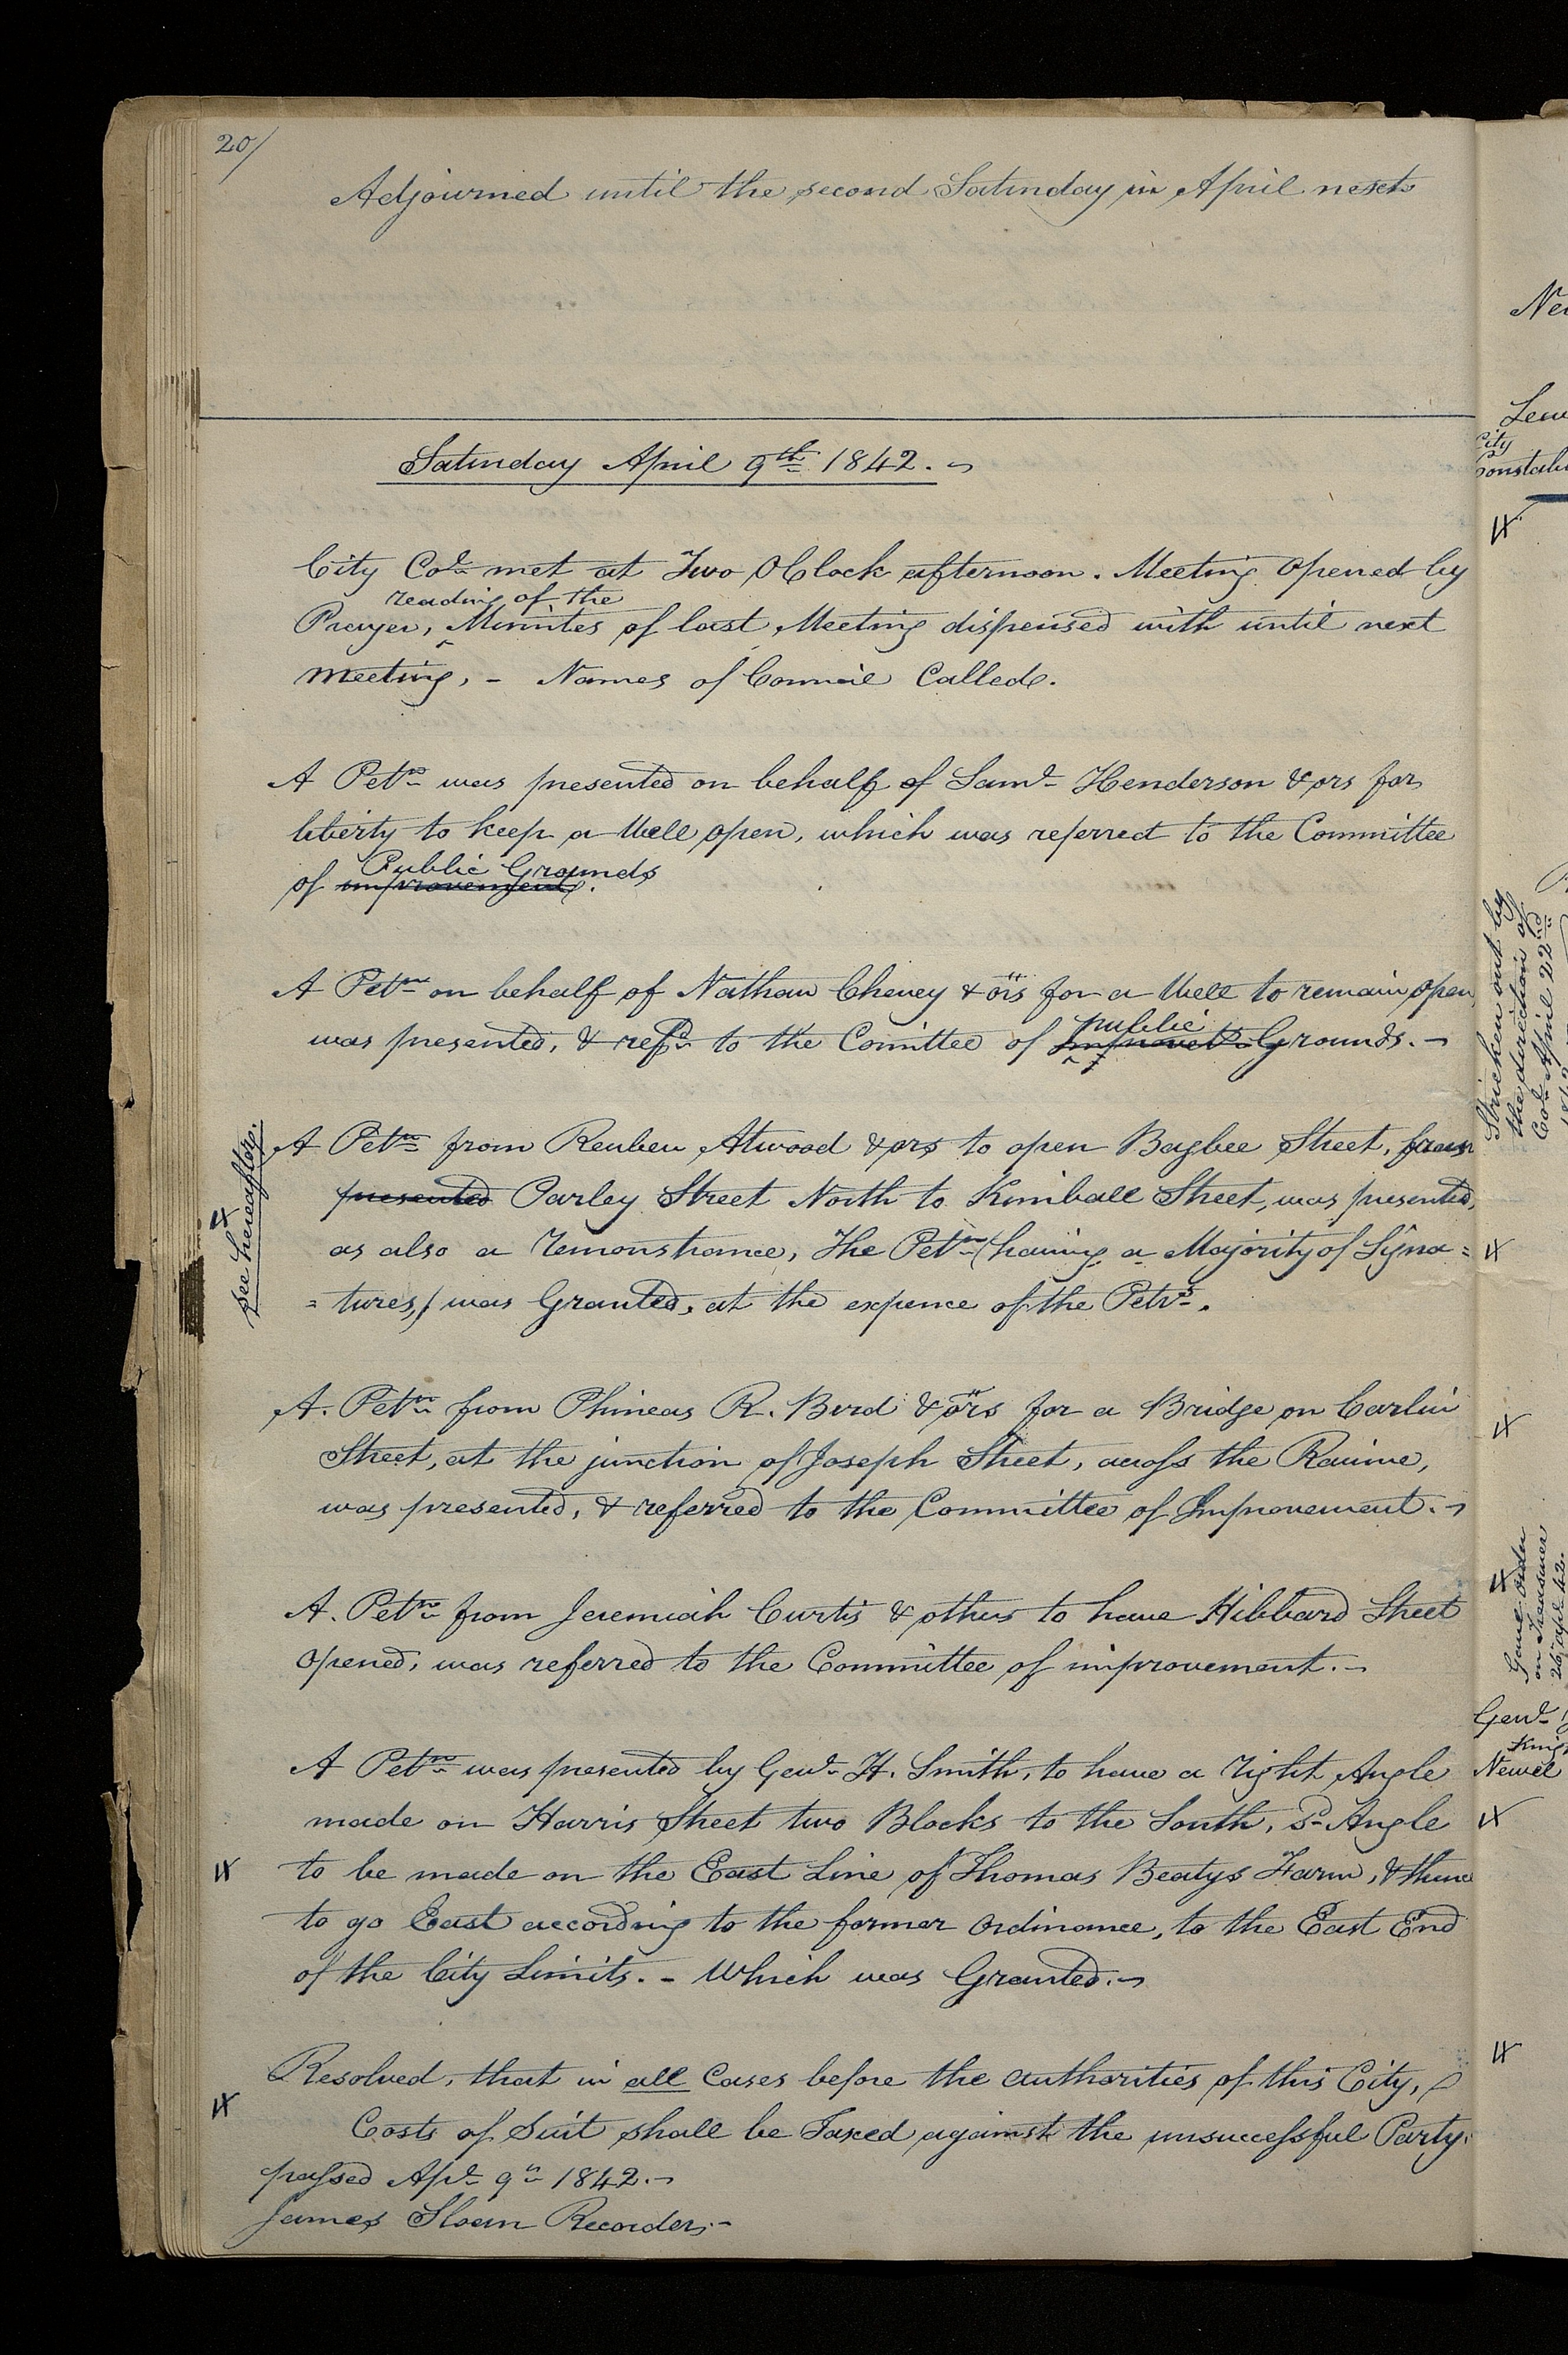 20/
Adjourned until the second Saturday in April next
Saturday April 9th 1842.
City Col met at Two OClock afternoon. Meeting Opened by
reading of the
Prayer, Minutes of last Meeting dispensed with until next
meeting, - Names of Council Called.
A Petn was presented on behalf of Saml Henderson & ors for
liberty to keep a Well open, which was referred to the Committee
Public Grounds
of improvement.
A Petn on behalf of Nathan Cheney & ors for a Well to remain open,
public
was presented, & refd to the Comittee of Improvet Grounds.
A Petn from Reuben Atwood & ors to open Bagbee Street, from
presented Parley Street North to Kimball Street, was presented,
as also a remonstrance, The Petn (having a Majority of Signa=
=tures,) was Granted, at the expence of the Petrs.
see hereafter.
A. Petn from Phineas R. Bird & ors for a Bridge on Carlin
Street, at the junction of Joseph Street, across the Ravine,
was presented, & referred to the Committee of Improvement.
A. Petn from Jeremiah Curtis & others to have Hibbard Street
opened, was referred to the Committee of improvement.
A Petn was presented by Genl H. Smith, to have a right Angle
made on Harris Street two Blocks to the South, sd Angle
to be made on the East Line of Thomas Beatys Farm, & thence
to go East according to the former Ordinance, to the East End
of the City Limits. - Which was Granted.
Resolved, that in all Cases before the authorities of this City,
Costs of Suit shall be Taxed against the unsuccessful Party.
passed Apl 9th 1842.
James Sloan Recorder.
City
Stricken out by
the direction of
Col April 22nd
Genl
Newel